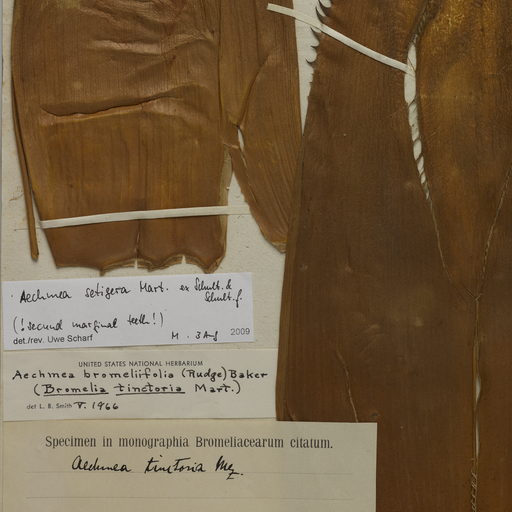 Aechmea setigera Mart. ex Schult. &
Schult. f.
(! secund marginal teeth!)
det./rev. Uwe Scharf M. 3 Aug 2009
UNITED STATES NATIONAL HERBARIUM
Aechmea bromeliifolia (Rudge) Baker
(Bromelia tinctoria Mart.)
det L. B. Smith V. 1966
Specimen in monographia Bromeliacearum citatum.
Aechmea tinctoria Mez.